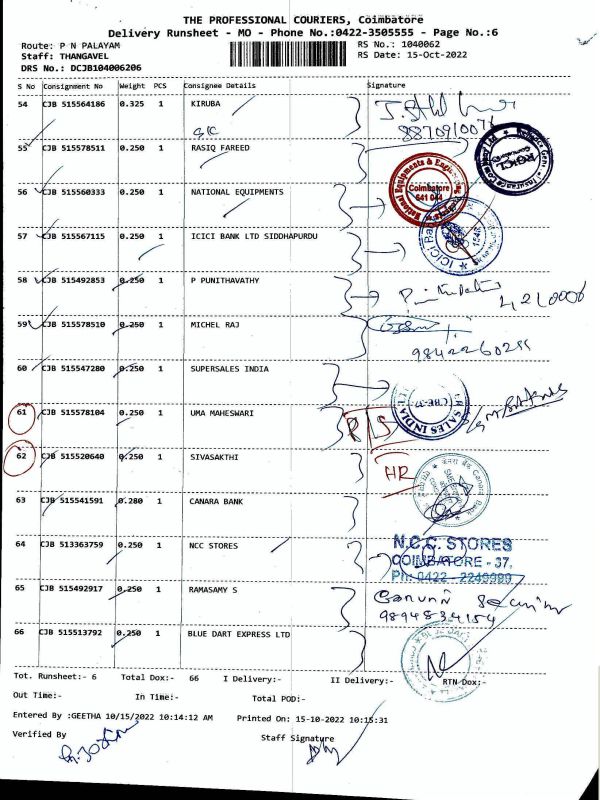 THE PROFESSIONAL COURIERS, Coimbatore
Delivery Runsheet - MO - Phone No.:0422-3505555 - Page No.:6
Route: P N PALAYAM RS No.: 1040062
Staff: THANGAVEL RS Date: 15-Oct-2022
DRS No.: DCJB104006206
S No Consignment No Weight PCS Consignee Details Signature
54 CJB 515564186 0.325 1 KIRUBA
55 CJB 515578511 0.250 1 RASIQ FAREED
56 CJB 515560333 0.250 1 NATIONAL EQUIPMENTS
Coimbatore
641 044
57 CJB 515567115 0.250 1 ICICI BANK LTD SIDDHAPURDU
58 CJB 515492853 0.250 1 P PUNITHAVATHY
59 CJB 515578510 0.250 1 MICHEL RAJ
60 CJB 515547280 0.250 1 SUPERSALES INDIA
61 CJB 515578104 0.250 1 UMA MAHESWARI
62 CJB 515520640 0.250 1 SIVASAKTHI HR
63 CJB 515541591 0.280 1 CANARA BANK
64 CJB 513363759 0.250 1 NCC STORES
N.C.C. STORES
COIMBATORE - 37.
Ph: 0422 - 2249989
65 CJB 515492917 0.250 1 RAMASAMY S
9894834154
66 CJB 515513792 0.250 1 BLUE DART EXPRESS LTD
Tot. Runsheet:- 6 Total Dox:- 66 I Delivery:- II Delivery:- RTN Dox:-
Out Time:- In Time:- Total POD:-
Entered By :GEETHA 10/15/2022 10:14:12 AM Printed On: 15-10-2022 10:15:31
Verified By Staff Signature